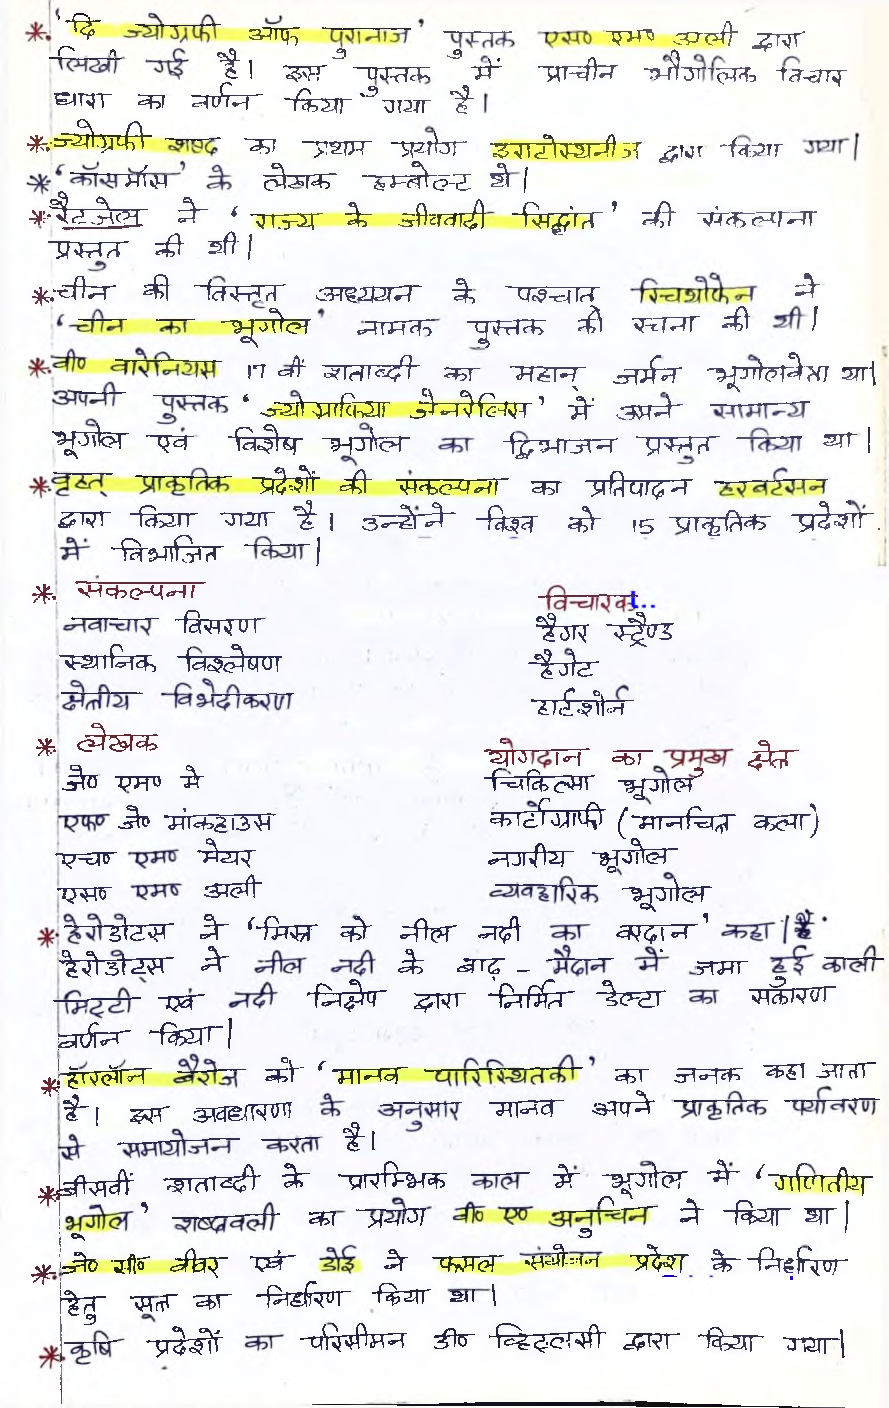 * 'दि ज्योग्रफी ऑफ पुरानाज' पुस्तक एस० एम० अली द्वारा
लिखी गई है। इस पुस्तक में प्राचीन भौगोलिक विचार
धारा का वर्णन किया गया है।
* ज्योग्रफी शब्द का प्रथम प्रयोग इराटोस्थनीज द्वारा किया गया।
* 'कॉसमॉस' के लेखक हम्बोल्ट थे।
* रैटजेल ने 'राज्य के जीववादी सिद्धांत' की संकल्पना
प्रस्तुत की थी।
* चीन की विस्तृत अध्ययन के पश्चात् रिचथोफेन ने
'चीन का भूगोल' नामक पुस्तक की रचना की थी।
* वी० वारेनियस 17 वीं शताब्दी का महान् जर्मन भूगोलवेता था।
अपनी पुस्तक 'ज्योग्राफिया जेनरेलिस' में उसने सामान्य
भूगोल एवं विशेष भूगोल का द्विभाजन प्रस्तुत किया था।
* वृहत् प्राकृतिक प्रदेशों की संकल्पना का प्रतिपादन हरबर्टसन
द्वारा किया गया है। उन्होंने विश्व को 15 प्राकृतिक प्रदेशों
में विभाजित किया।
* संकल्पना विचारक...
नवाचार विसरण हैगर स्ट्रैण्ड
स्थानिक विश्लेषण हैगेट
क्षेत्रीय विभेदीकरण हार्टशोर्न
* लेखक योगदान का प्रमुख क्षेत्र
जे० एम० मे चिकित्सा भूगोल
एफ० जे० मांकहाउस कार्टोग्राफी (मानचित्र कला)
एच० एम० मेयर नगरीय भूगोल
एस० एम० अली व्यवहारिक भूगोल
* हेरोडोटस ने 'मिस्र को नील नदी का वरदान' कहा। है
हेरोडोट्स ने नील नदी के बाढ़ - मैदान में जमा हुई काली
मिट्टी एवं नदी निक्षेप द्वारा निर्मित डेल्टा का सकारण
वर्णन किया।
* हॉरलॉन बैरोज को 'मानव पारिस्थितकी' का जनक कहा जाता
है। इस अवधारणा के अनुसार मानव अपने प्राकृतिक पर्यावरण
से समायोजन करता है।
* बीसवीं शताब्दी के प्रारम्भिक काल में भूगोल में 'गणितीय
भूगोल' शब्दावली का प्रयोग वी० ए० अनुचिन ने किया था।
* जे० सी० वीवर एवं डोई ने फसल संयोजन प्रदेश के निर्धारण
हेतु सूत्र का निर्धारण किया था।
* कृषि प्रदेशों का परिसीमन डी० व्हिट्लसी द्वारा किया गया।